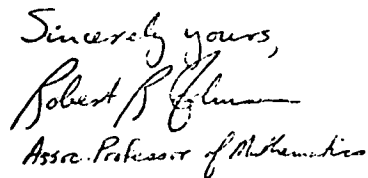 Sincerely yours,
Robert R
Assoc. Professor of Mathematics